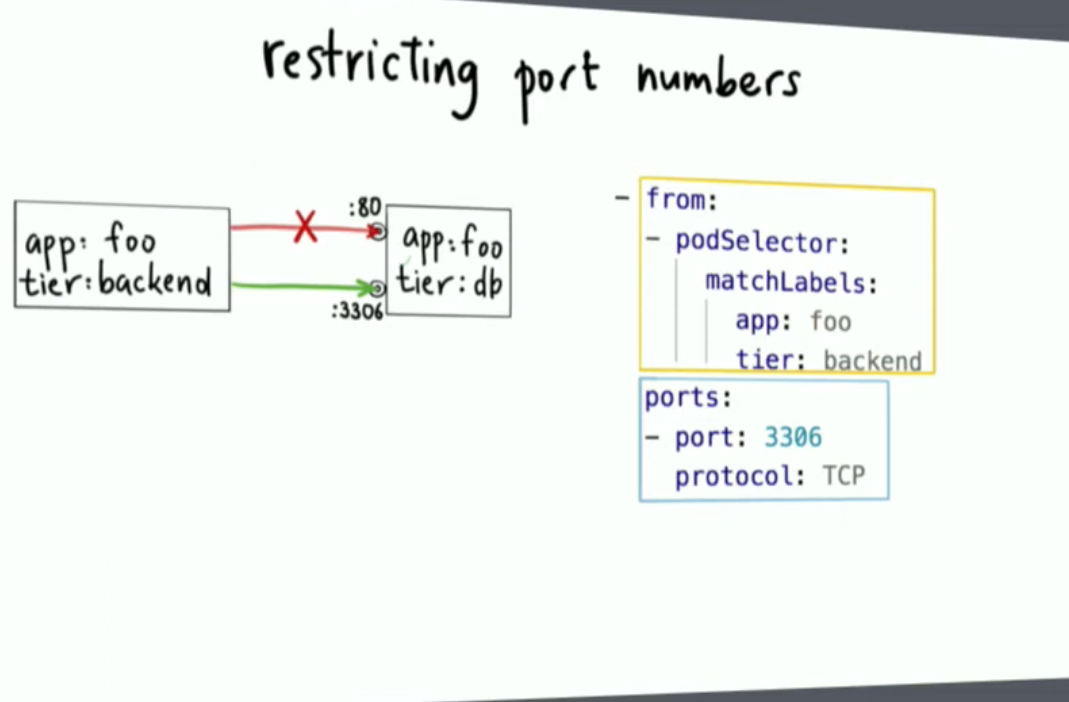 restricting port numbers
app: foo
tier: backend
:80
:3306
app: foo
tier: db
- from:
- podSelector:
matchLabels:
app: foo
tier: backend
ports:
- port: 3306
protocol: TCP